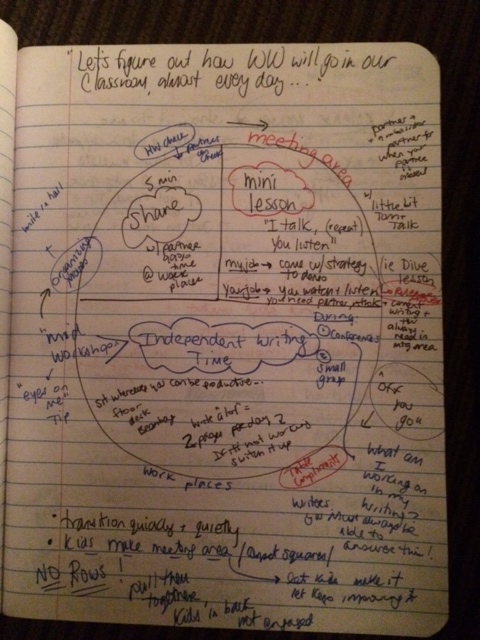 "Let's figure out how WW will go in our
Classroom, almost every day..."
HW check
meeting area
partner +
partner for
when your
partner
is absent
5 min
share
w/ partner
time
@ work
places
mini
lesson
w/ little bit
Turn +
Talk
"I talk, (repeat)
you listen"
my job → come w/ strategy
to demo
your job → you watch + listen
you need partner,
ie Dive
lesson
writing +
they
always need in
mtg area
write on hall
organizing
"mid
workshop"
"eyes on
me"
Tip
Independent Writing
Time
During:
① Conferences
② small
group
sit wherever you can be productive...
floor
desk
beanbag
write a lot =
2 pages per day 2
If it's not working
switch it up
"Off
you
go"
work places
Table
Compliments
What am
I
working on
in my
writing?
Writers
you must always be
able to
answer this!
• transition quickly + quietly
• Kids make meeting area / carpet squares /
→ let kids make it
let keep improving it
NO ROWS!
pull them
together
Kids in back
not engaged